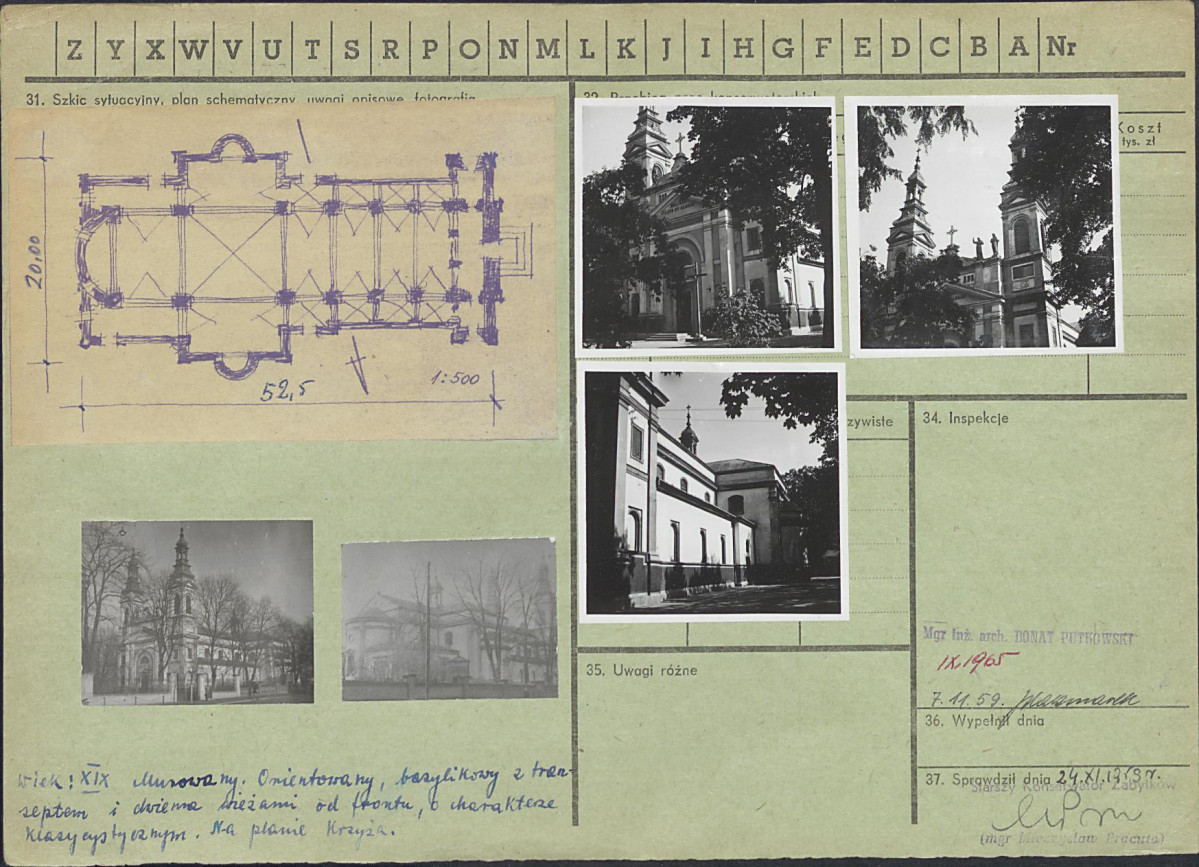 Z Y X W V U T S R P O N M L K J I H G F E D C B A Nr
31. Szkic sytuacyjny, plan schematyczny, uwagi opisowe, fotografie
Koszt
tys. zł
20,00
52,5
1:500
zywiste
34. Inspekcje
35. Uwagi różne
Mgr inż. arch. DONAT PUTKOWSKI
IX.1965
7.11.59.
36. Wypełnił dnia
37. Sprawdził dnia 24.XI.1959r.
Starszy Konserwator Zabytków
(mgr Mieczysław Fracuta)
wiek: XIX Murowany. Orientowany, bazylikowy z tran-
septem i dwiema wieżami od frontu, o charakterze
klasycystycznym. Na planie Krzyża.